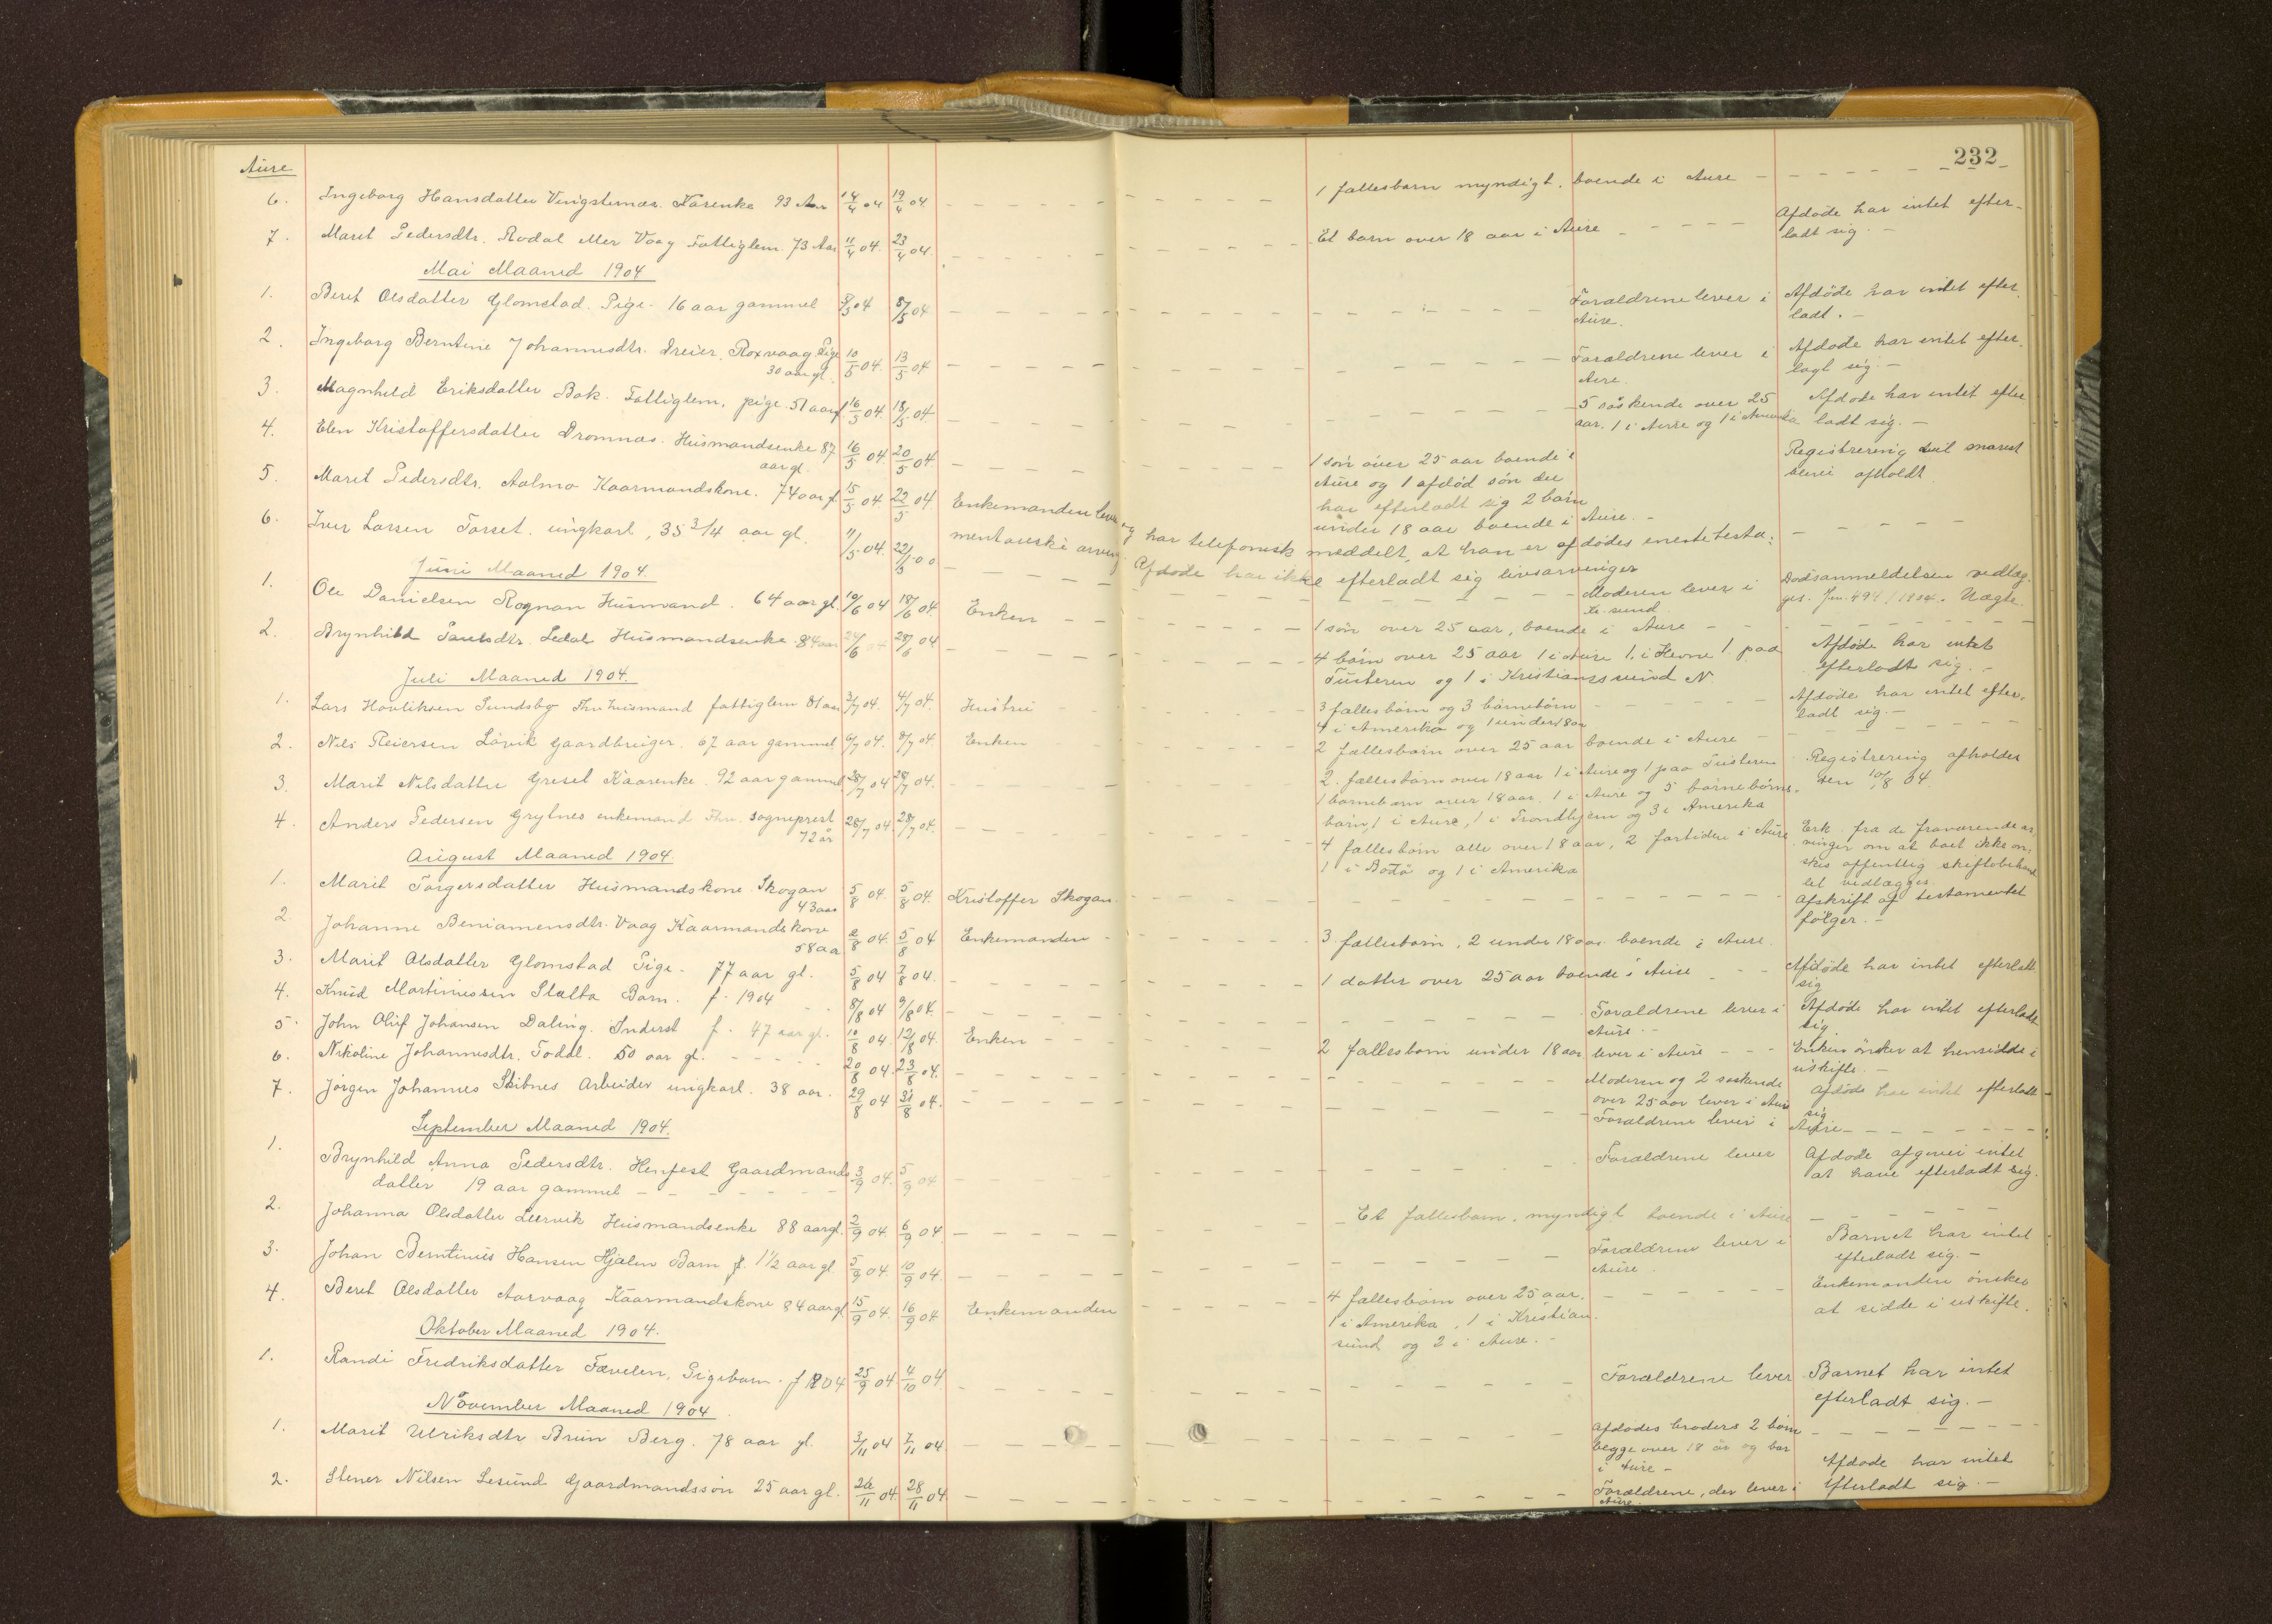 232
Aure
6. Ingeborg Hansdatter Vingsternæs. Kårenke 93 Aar 14/4 04 19/4 04. 1 fællesbarn myndigt. boende i Aure
7. Marit Pedersdtr. Rodal eller Vaag Fattiglem. 73 Aar 11/4 04. 23/4 04. Et barn over 18 aar i Aure Afdøde har intet efter-
ladt sig. -
Mai Maaned 1904
1. Beret Olsdatter Glomstad. Pige. 16 aar gammel 8/5 04 8/5 04 Forældrene lever i Afdøde har intet efter
Aure. ladt. -
2. Ingeborg Berntine Johannesdtr. Dreier. Roxvaag Pige 10/5 04. 13/5 04 Forældrene lever i Afdøde har intet efter
30 aar gl. Aure. lagt sig. -
3. Magnhild Eriksdatter Bak. Fattiglem, pige. 51 aar f. 16/5 04 18/5 04. 5 søskende over 25 Afdøde har intet efter
aar. 1 i Aure og 1 i Amerika ladt sig. -
4. Elen Kristoffersdatter Dromnæs. Husmandsenke 87 16/5 04. 20/5 04. 1 søn over 25 aar boende i Registrering vil snarest
aar gl. Aure og 1 afdød søn der blive afholdt.
har efterladt sig 2 børn
under 18 aar boende i Aure. -
5. Marit Pedersdtr. Aalmo Kaarmandskone. 74 aar f. 15/5 04. 22/5 04 Enkemanden lever og har telefonisk meddelt, at han er afdødes eneste testa-
mentariske arving. Afdøde har ikke efterladt sig livsarvinger
6. Iver Larsen Torset. ungkarl, 35 3/4 aar gl. 11/5 04. 22/5 00 Moderen lever i Dødsanmeldelsen vedlæg-
Kr.sund ges. Jnr. 494/1904. Nægte.
Juni Maaned 1904.
1. Ole Danielsen Rognan Husmand. 64 aar gl. 10/6 04 18/6 04. Enken 1 søn over 25 aar, boende i Aure
2. Brynhild Paulsdtr. Ledal Husmandsenke. 84 aar 24/6 04 28/6 04 4 børn over 25 aar 1 i Aure 1. i Hevne 1 paa Afdøde har intet
Tusteren og 1 i Kristianssund N. efterladt sig. -
Juli Maaned 1904.
1. Lars Hoaliksen Sundsbø Fhv husmand fattiglem 81 aar 3/7 04. 4/7 04. Hustru 3 fællesbørn og 3 børnebørn Afdøde har intet efter-
4 i Amerika og 1 under 18 aar ladt sig. -
2. Nils Reiersen Løvik gaardbruger. 67 aar gammel 6/7 04. 8/7 04. Enken 2 fællesbørn over 25 aar boende i Aure
3. Marit Nilsdatter Gresel Kaarenke. 92 aar gammel 28/7 04 28/7 04. 2. fællesbørn over 18 aar 1 i Aure og 1 paa Tusteren Registrering afholdes
1 barnebarn over 18 aar. 1 i Aure og 5 børnebørns- den 10/8 04.
børn, 1 i Aure, 1 i Trondhjem og 3 i Amerika
4. Anders Pedersen Grylnes enkemand Fhv. sogneprest 28/7 04. 28/7 04. 4 fællesbørn alle over 18 aar, 2 fortiden i Aure Erk. fra de fraværende ar-
72 år 1 i Bodø og 1 i Amerika vinger om at boet ikke øn-
skes offentlig skiftebehand
let vedlægges
August Maaned 1904.
1. Marit Torgersdatter Husmandskone Skogan 5/8 04. 5/8 04. Kristoffer Skogan. Afskrift af testamentet
43 aar følger. -
2. Johanne Beniamensdtr. Vaag Kaarmandskone 2/8 04. 5/8 04 Enkemanden 3. fællesbørn, 2 under 18 aar boende i Aure.
58 aar
3. Marit Olsdatter Glomstad Pige. 77 aar gl. 5/8 04 7/8 04. 1 datter over 25 aar boende i Aure Afdøde har intet efterladt
sig
4. Knud Martinussen Stølta Barn. f. 1904 8/8 04 9/8 04. Forældrene lever i Afdøde har intet efterladt
Aure. - sig.
5. John Oluf Johansen Daling. Inderst f. 47 aar gl. 10/8 04. 12/8 04. Enken 2 fællesbørn under 18 aar lever i Aure Enken ønsker at hensidde i
uskifte. -
6. Nikoline Johannesdtr. Toddl. 50 aar gl. 20/8 04. 23/8 04. Moderen og 2 søskende Afdøde har intet efterladt
over 25 aar lever i Aure sig
7. Jørgen Johannes Skibnes Arbeider ungkarl. 38 aar. 29/8 04 31/8 04. Forældrene lever i Aure
September Maaned 1904.
1. Brynhild Anna Pedersdtr. Henfest Gaardmands 3/9 04. 5/9 04 Forældrene lever Afdøde afgives intet
datter 19 aar gammel at have efterladt sig.
2. Johanna Olsdatter Leervik Husmandsenke 88 aar gl. 2/9 04. 6/9 04. Et fællesbarn, myndigt boende i Aure
3. Johan Berntinus Hansen Hjalen Barn f. 1 1/2 aar gl. 5/9 04. 10/9 04. Forældrene lever i Barnet har intet
Aure. efterladt sig. -
4. Beret Olsdatter Aarvaag Kaarmandskone 84 aar gl. 15/9 04. 16/9 04 Enkemanden 4 fællesbørn over 25 aar. Enkemanden ønsker
1 i Amerika, 1 i Kristian- at sidde i uskifte.
sund og 2 i Aure. -
Oktober Maaned 1904.
1. Randi Fredriksdatter Tævelen, Pigebarn. f 1904 25/9 04. 4/10 04. Forældrene lever Barnet har intet
efterladt sig. -
November Maaned 1904.
1. Marit Ulriksdtr. Brun Berg. 78 aar gl. 3/11 04 7/11 04. Afdødes broders 2 børn
begge over 18 år og bor
i Aure -
2. Stener Nilsen Lesund Gaardmandssøn 25 aar gl. 26/11 04. 28/11 04. Forældrene, der lever i Afdøde har intet
Aure. efterladt sig. -